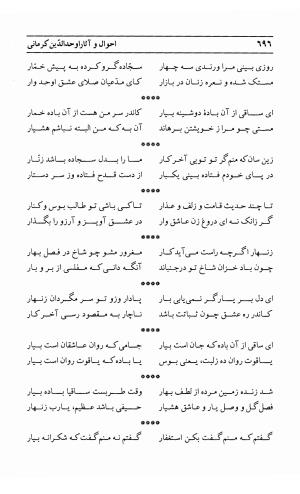 ۶۹۶ احوال و آثار اوحدالدّین کرمانی
روزی بینی مرا ورندی سه چهار سجّاده گرو کرده به پیش خمّار
مستک شده و نعره زنان در بازار کای مدّعیان صلای عشق اوحد وار
****
ای ساقی از آن بادهٔ دوشینه بیار کاندر سر من هست از آن باده خمار
مستی چو مرا از خویشتن برهاند آن به که من البته نباشم هشیار
****
زین سان که منم گر تو تویی آخر کار ما را بدل سجاده باشد زنّار
در پای خودم فتاده بینی یکبار از دست قدح فتاده وز سر دستار
****
تا چند حدیث قامت و زلف و عذار تا کی باشی تو طالب بوس و کنار
گر زانک نه ای دروغ زن عاشق وار در عشق آویز و آرزو را بگذار
****
زنهار اگرچه راست می آید کار مغرور مشو چو شاخ در فصل بهار
چون باد خزان شاخ تو درجنباند آنگه دانی که مفلسی از بر و بار
****
ای دل بر یار گر نمی یابی بار پادار وزو تو سر مگردان زنهار
کاندر ره عشق چون ثباتت باشد ناچار به مقصود رسی آخر کار
****
ای ساقی از آن باده که جان است بیار جامی که روان عاشقان است بیار
یاقوت روان ده زلبت، یعنی بوس یا باده که یاقوت روان است بیار
****
شد زنده زمین مرده از لطف بهار وقت طربست ساقیا باده بیار
فصل گل و وصل یار و عاشق هشیار حیفی باشد عظیم، یارب زنهار
****
گفتم که منم گفت بکن استغفار گفتم نه منم گفت که شکرانه بیار